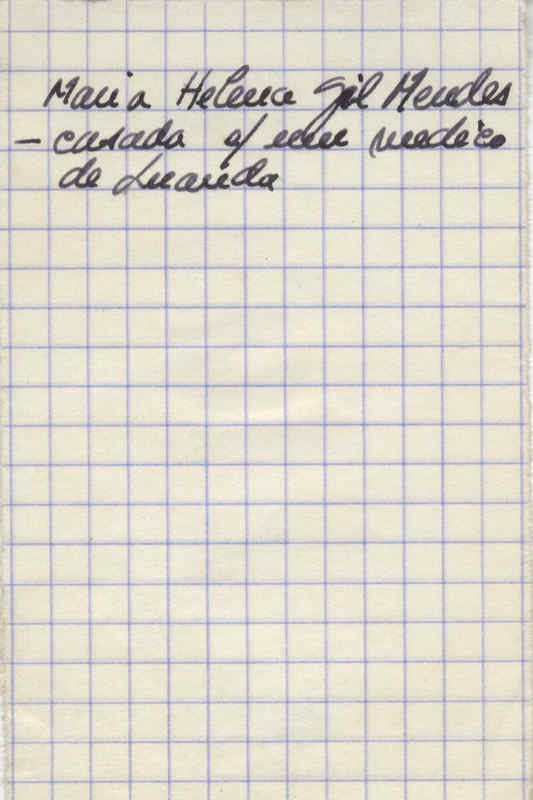 Maria Helena Gil Mendes
- casada c/ um medico
de Luanda